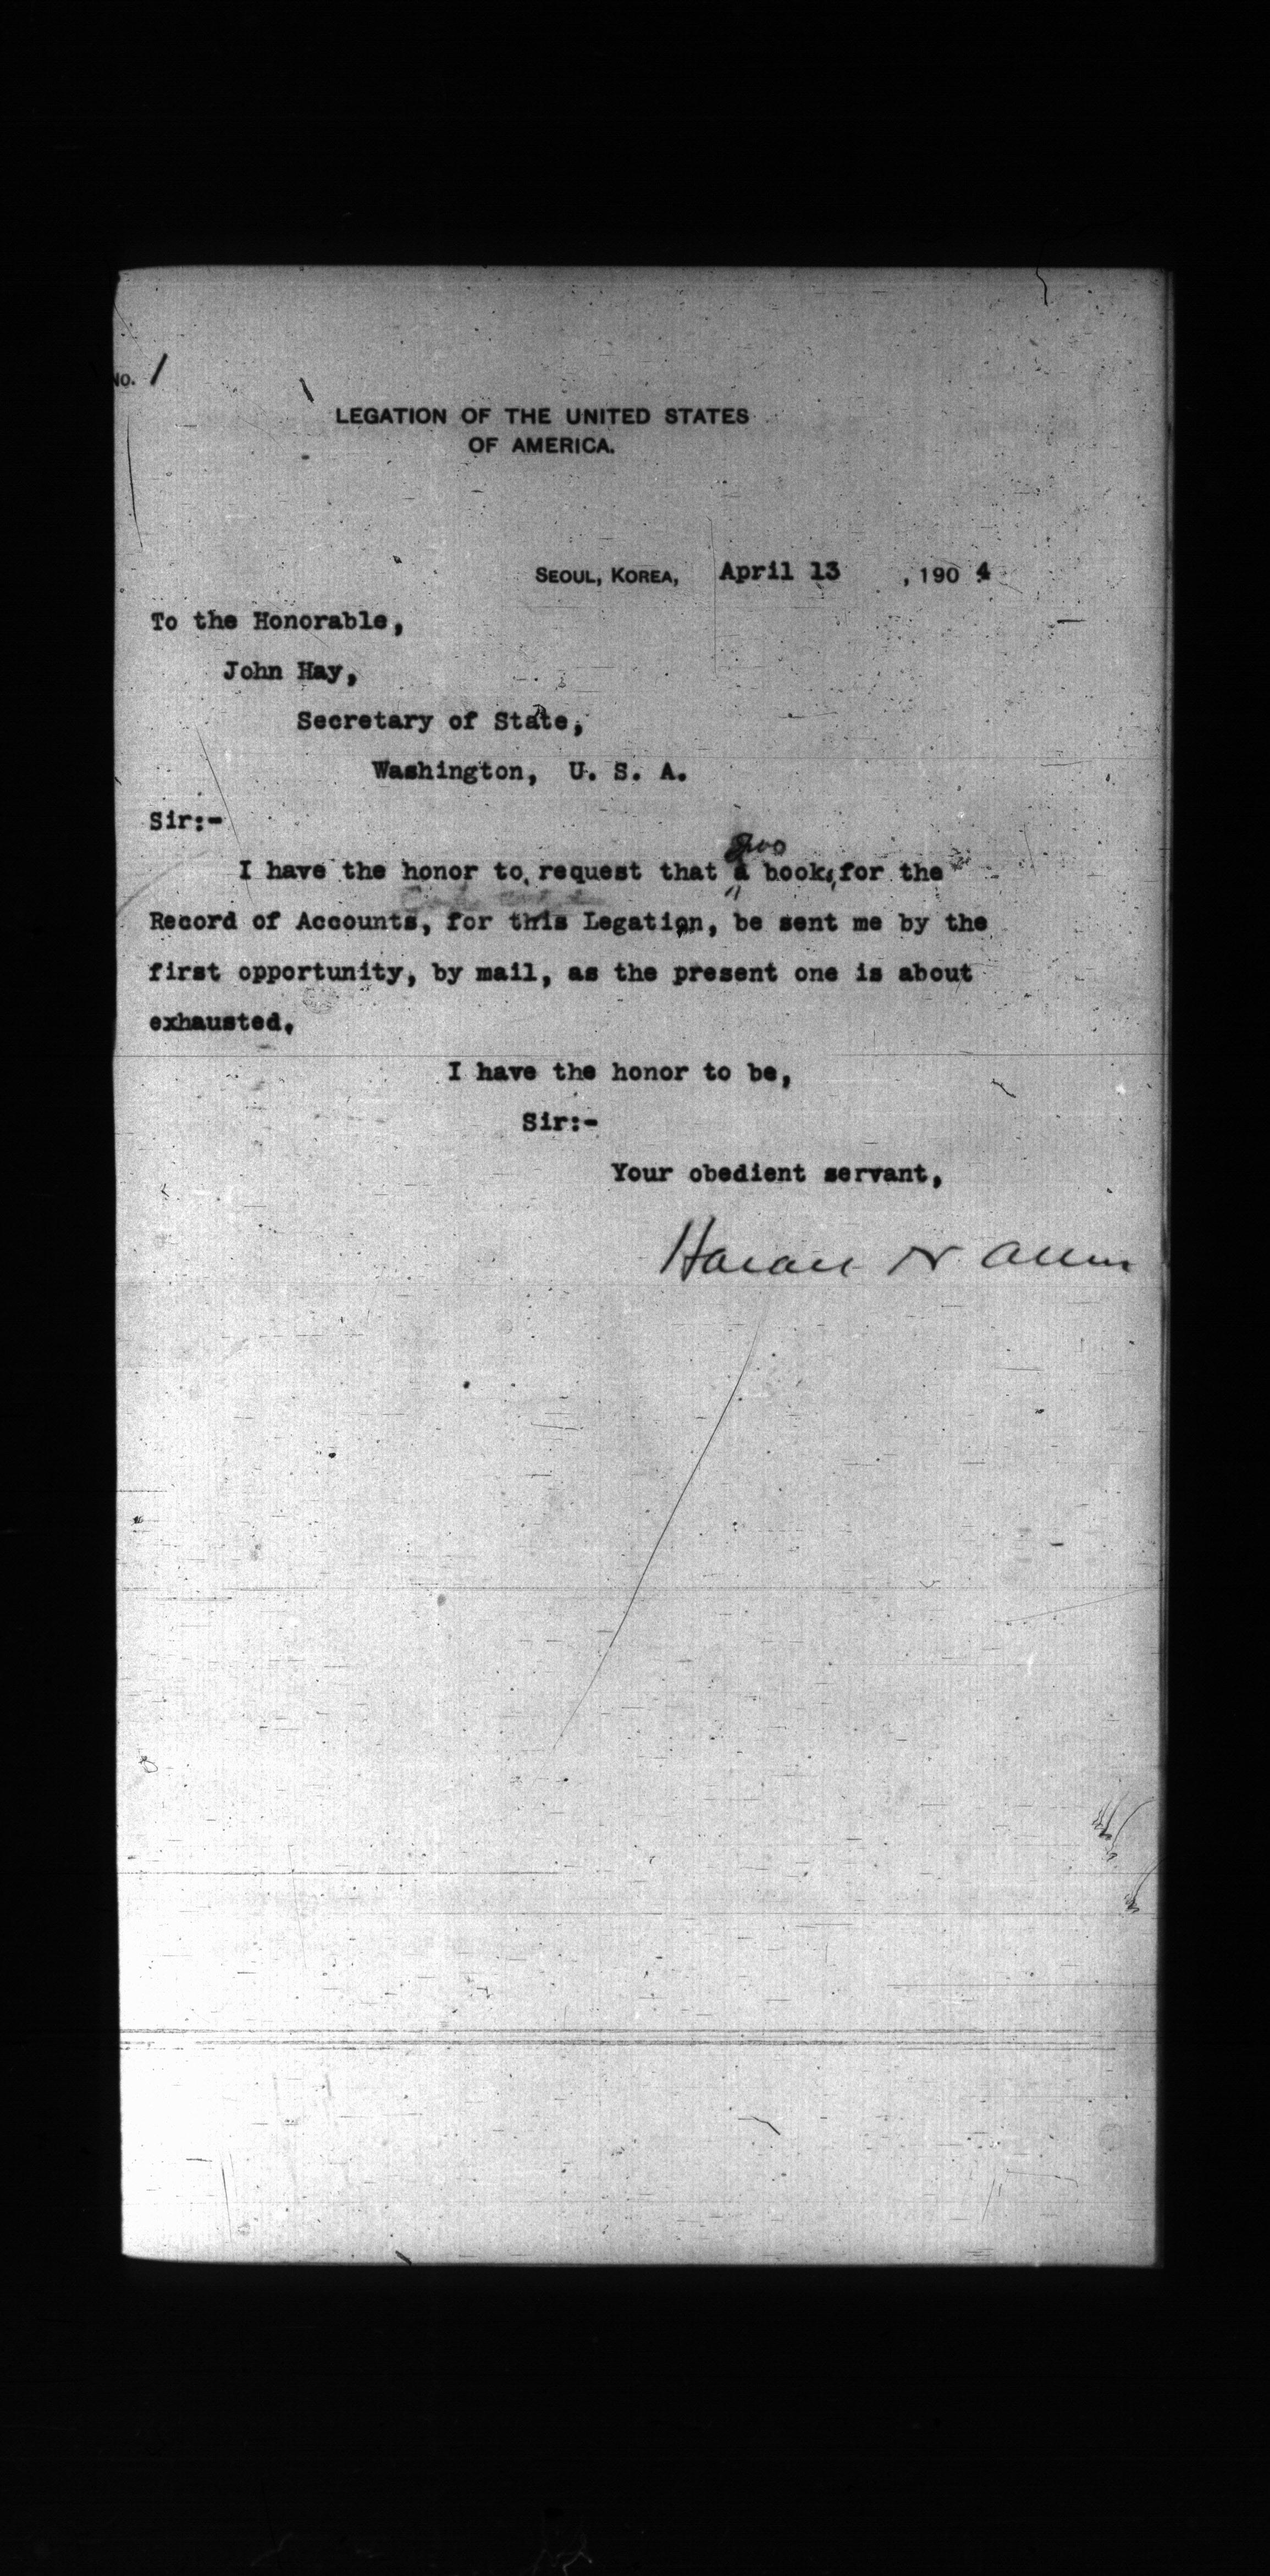 No. 1
LEGATION OF THE UNITED STATES
OF AMERICA.
SEOUL, KOREA, April 13, 1904
To the Honorable,
John Hay,
Secretary of State,
Washington, U. S. A.
Sir:-
two
I have the honor to request that a books for the
Record of Accounts, for this Legation, be sent me by the
first opportunity, by mail, as the present one is about
exhausted.
I have the honor to be,
Sir:-
Your obedient servant,
Horace N Allen